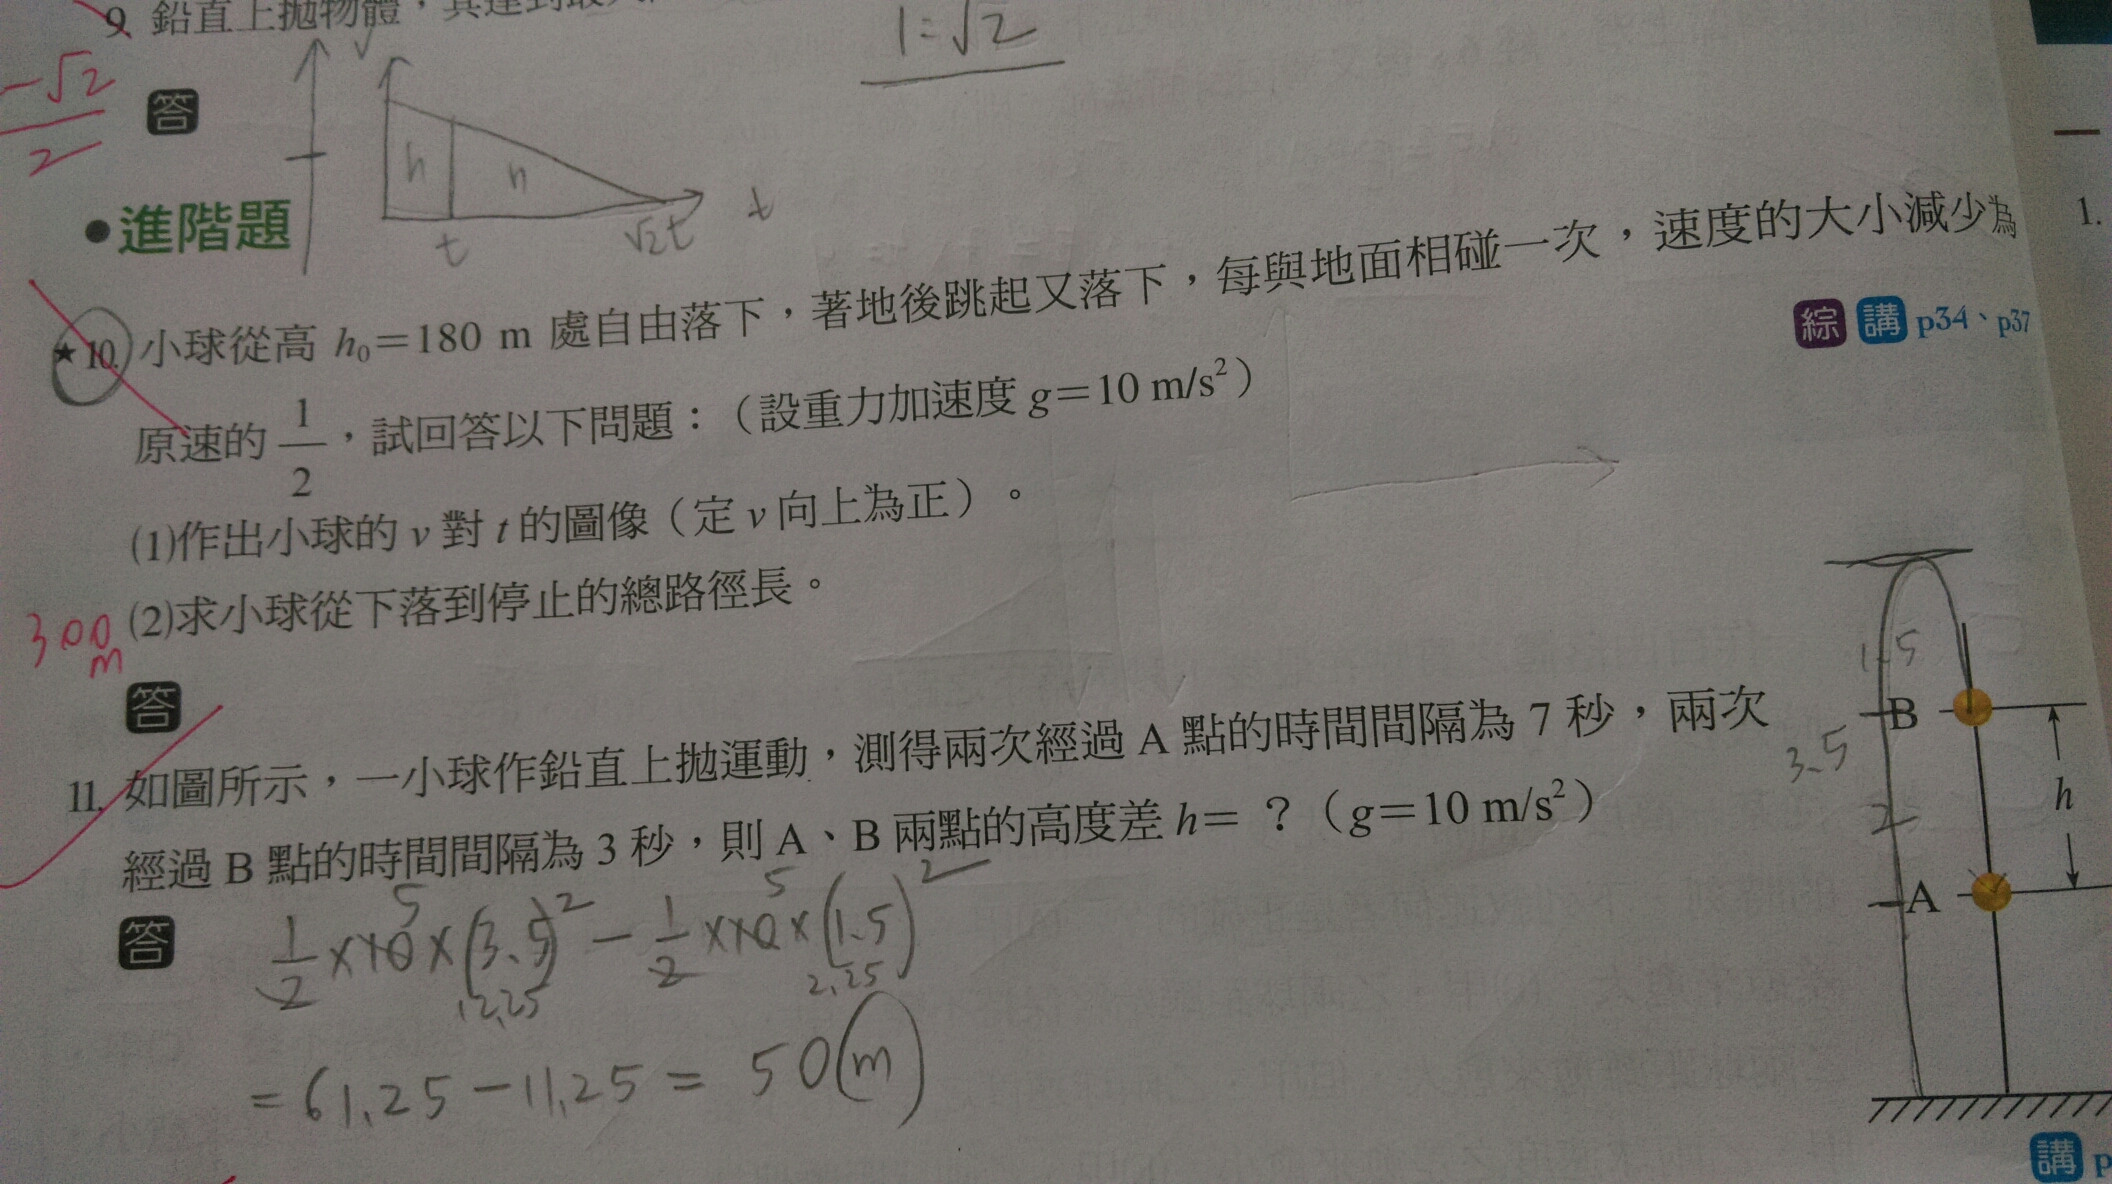 9. 鉛直上拋物體，其達到最
1:√2
-√2
2
答
v
h
h
t
√2t
t
●進階題
1.
★10. 小球從高 h₀=180 m 處自由落下，著地後跳起又落下，每與地面相碰一次，速度的大小減少為
綜 講 p34、p37
原速的 1/2，試回答以下問題：（設重力加速度 g=10 m/s²）
(1)作出小球的 v 對 t 的圖像（定 v 向上為正）。
300 m
(2)求小球從下落到停止的總路徑長。
答
11. 如圖所示，一小球作鉛直上拋運動，測得兩次經過 A 點的時間間隔為 7 秒，兩次
經過 B 點的時間間隔為 3 秒，則 A、B 兩點的高度差 h= ？（g=10 m/s²）
1.5
B
3.5
h
2
A
答
5 5
1/2×10×(3.5)²-1/2×10×(1.5)²
12.25 2.25
=61.25-11.25=50(m)
講 p